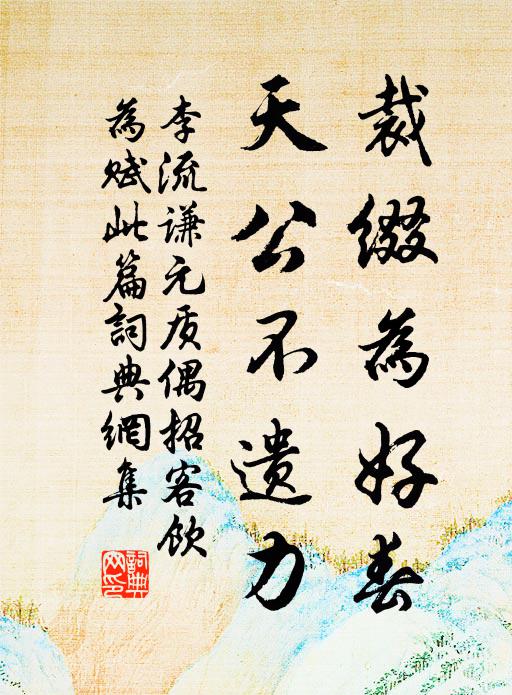 裁缀為好春
天公不遗力
李流谦元质偶招客饮
為赋此篇詞典網集
詞典
网印